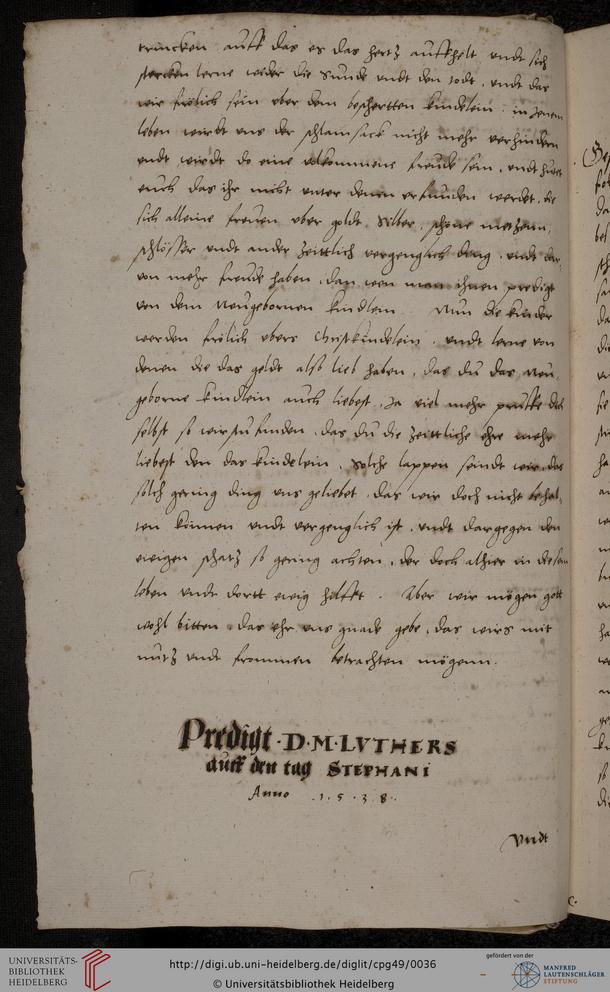 truncken auff das es das hertz auffhelt undt sich
stercken lerne wider die Sunde undt den todt, undt das
wir frölich sein uber dem beschertten kindelein. in jenem
leben wirdt uns der schlamsack nicht mehr verhindern
undt wirdt do eine volkommene freude sein, undt hütet
euch das ihr nicht unter denen erfunden werdet, die
sich alleine freuen uber goldt, Silber, schöne
schlösser undt ander zeittlich vergenglich ding, undt dar-
von mehr freude haben, dan wen man ihnen predigt
von dem Neugebornen kindlein. Nun die kinder
werden frölich ubers Christkindelein, undt lerne von
denen die das geldt also lieb haben, das du das Neu
geborne kindlein auch liebest, Ja viel mehr pruffe dich
selbst so wirstu finden, das du die zeittliche ehre mehr
liebest den das kindelein, Solche lappen seindt wir, das
solch gering ding uns geliebet, das wir doch nicht behal-
ten können undt vergenglich ist, undt dargegen den
ewigen schatz so gering achten, der doch alhier in diesem
leben undt dortt ewig hilfft. Aber wir mögen gott
wohl bitten, das ehr uns gnade gebe, das wirs mit
nutz undt frommen betrachten mögenn.
Predigt·D·M·LVTHERS
auff den tag STEPHANI
Anno .1.5.3.8.
Undt
UNIVERSITÄTS-
BIBLIOTHEK
HEIDELBERG
http://digi.ub.uni-heidelberg.de/diglit/cpg49/0036
© Universitätsbibliothek Heidelberg
gefördert von der
MANFRED
LAUTENSCHLÄGER
STIFTUNG